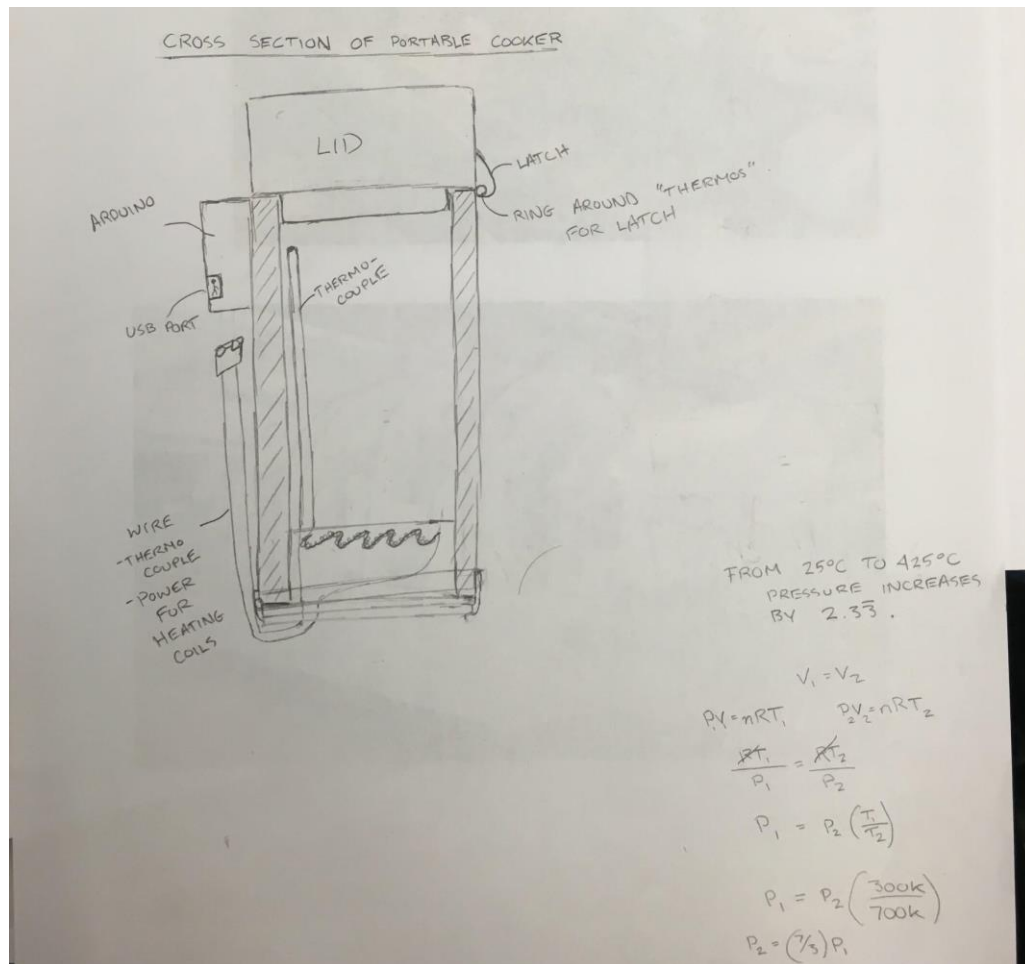 CROSS SECTION OF PORTABLE COOKER
LID
LATCH
RING AROUND "THERMOS"
FOR LATCH
ARDUINO
THERMO-
COUPLE
USB PORT
WIRE
-THERMO
COUPLE
-POWER
FOR
HEATING
COILS
FROM 25°C TO 425°C
PRESSURE INCREASES
BY 2.33̅.
V₁ = V₂
P₁V₁=nRT₁ P₂V₂=nRT₂
RT₁/P₁ = RT₂/P₂
P₁ = P₂ (T₁/T₂)
P₁ = P₂ (300K/700K)
P₂ = (7/3) P₁